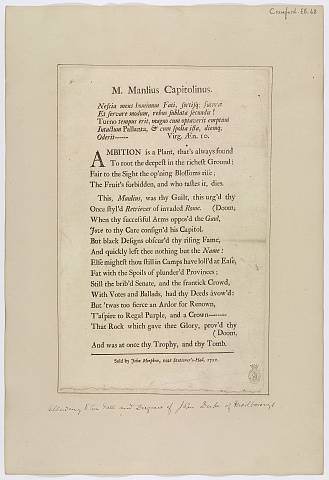 Crawford. EB. 48
M. Manlius Capitolinus.
Nescia mens hominum Fati, sortisq; futuræ
Et servare modum, rebus sublata secundis!
Turno tempus erit, magno cum optaverit emptum
Intactum Pallanta, & cum spolia ista, diemq;
Oderit------ Virg. Æn. 10.
AMBITION is a Plant, that's always found
To root the deepest in the richest Ground;
Fair to the Sight the op'ning Blossoms rise;
The Fruit's forbidden, and who tastes it, dies.
This, Manlius, was thy Guilt, this urg'd thy
Once styl'd Retriever of invaded Rome. (Doom,
When thy successful Arms oppos'd the Gaul,
Jove to thy Care consign'd his Capitol.
But black Designs obscur'd thy rising Fame,
And quickly left thee nothing but the Name:
Else mightst thou still in Camps have loll'd at Ease,
Fat with the Spoils of plunder'd Provinces;
Still the brib'd Senate, and the frantick Crowd,
With Votes and Ballads, had thy Deeds avow'd:
But 'twas too fierce an Ardor for Renown,
T'aspire to Regal Purple, and a Crown--------
That Rock which gave thee Glory, prov'd thy
(Doom,
And was at once thy Trophy, and thy Tomb.
Sold by John Morphew, near Stationer's-Hall, 1711.
and Disgrace of John Duke of Marlborough